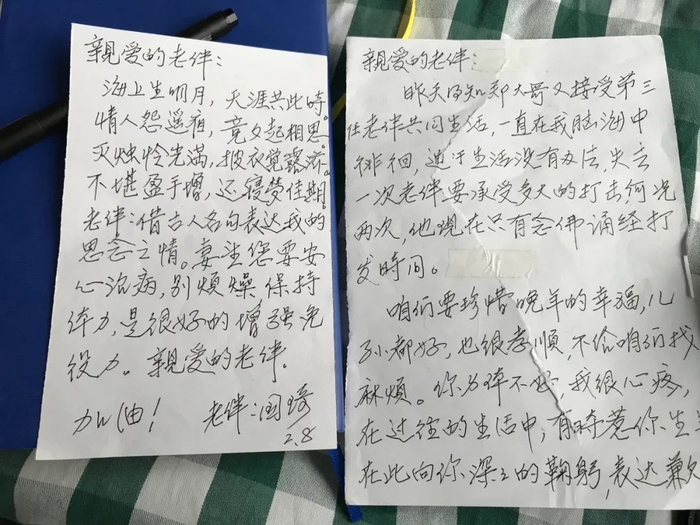 親爱的老伴：
海上生明月，天涯共此時
情人怨遥夜，竟夕起相思。
灭烛怜光满，披衣覚露滋。
不堪盈手增，还寝梦佳期。
老伴：借古人名句表达我的
思念之情。妻望您要安
心治病，别煩燥 保持
体力，是很好的增强免
役力。親爱的老伴。
加油！ 老伴：国琦
2.8
親爱的老伴：
昨天得知郑大哥又接受第三
任老伴共同生活，一直在我脑海中
徘徊，迫于生活没有办法，失去
一次老伴要承受多大的打击，何况
两次，他现在只有念佛诵经打
发时间。
咱们要珍惜晚年的幸福，儿
孙都好，也很孝順，不给咱们找
麻煩。你身体不好，我很心疼，
在过往的生活中，有時惹你生
在此向你深深的鞠躬，表达兼